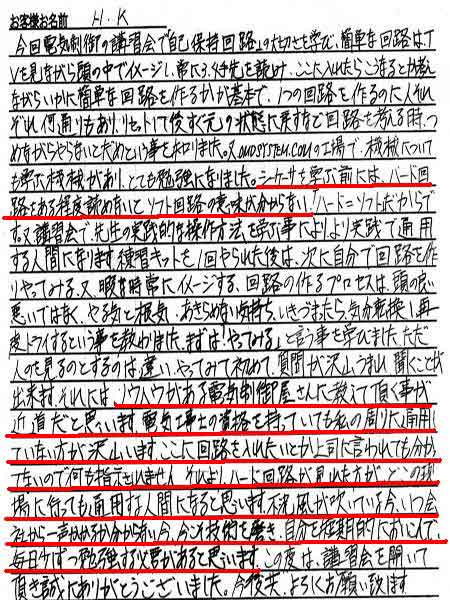 お客様お名前 H.K
今回電気制御の講習会で自己保持回路の大切さを学び、簡単な回路はT
Vを見ながら頭の中でイメージし常に3、4手先を読み、ここに入れたらこうなるとか考え
ながらいかに簡単な回路を作るかが基本で、1つの回路を作るのに人それ
ぞれ何通りもあり、リセットして後すぐ元の状態に戻すなど回路を考える時、つ
めながらやらないとだめという事を知りました。又OMDSYSTEM.COMの工場で、機械につい
ても学ぶ機械があり、とても勉強になりました。シーケーサを学ぶ前には、ハード回
路をある程度読めないとソフト回路の意味が分からない「ハード=ソフト」だからで
す。又講習会で、先生の実践的な操作方法を学ぶ事により、より実践で通用
する人間になります。練習キットを1回やられた後は、次に自分で回路を作
りやってみる。又、暇な時常にイメージする。回路の作るプロセスは、頭の良い
悪いではなく、やる気と根気、あきらめない気持ち、いきづまたら、気分転換し再
度トライするという事を教わりました。まずは「やってみる」と言う事を学びました。ただ
人のを見るのとするのは違い、やってみて初めて、質問が沢山うまれ聞くことが
出来ます。それには、ノウハウがある電気制御屋さんに教えて頂く事が
近道だと思います。電気工事士の資格を持っていても私の周りに通用し
ていない方が沢山います。ここに回路を入れたいとか上司に言われても分か
てないので何も指示されません。それより、ハード回路が見れた方が、どこの現
場に行っても通用な人間になると思います。不況風が吹いている今、いつ会
社から一声かかるか分からない今、今こそ技術を磨き、自分を短期的においこんで、
毎日少ずつ勉強する必要があると思います。この度は、講習会を開いて
頂き誠にありがとうございました。今後共、よろしくお願い致します